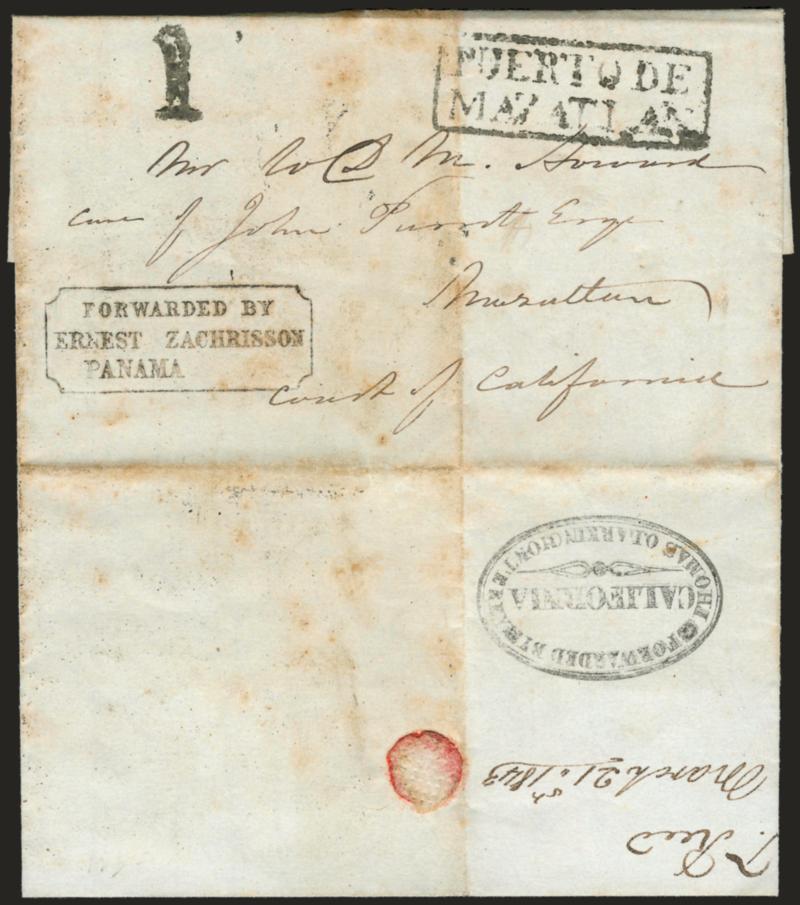 1
PUERTO DE
MAZATLAN
Mr W D M. Howard
care of John Parrott Esqr
Mazatlan
Coast of California
FORWARDED BY
ERNEST ZACHRISSON
PANAMA
FORWARDED BY
THOMAS O. LARKIN
MONTEREY
CALIFORNIA
March 21st 1843
T. Reed